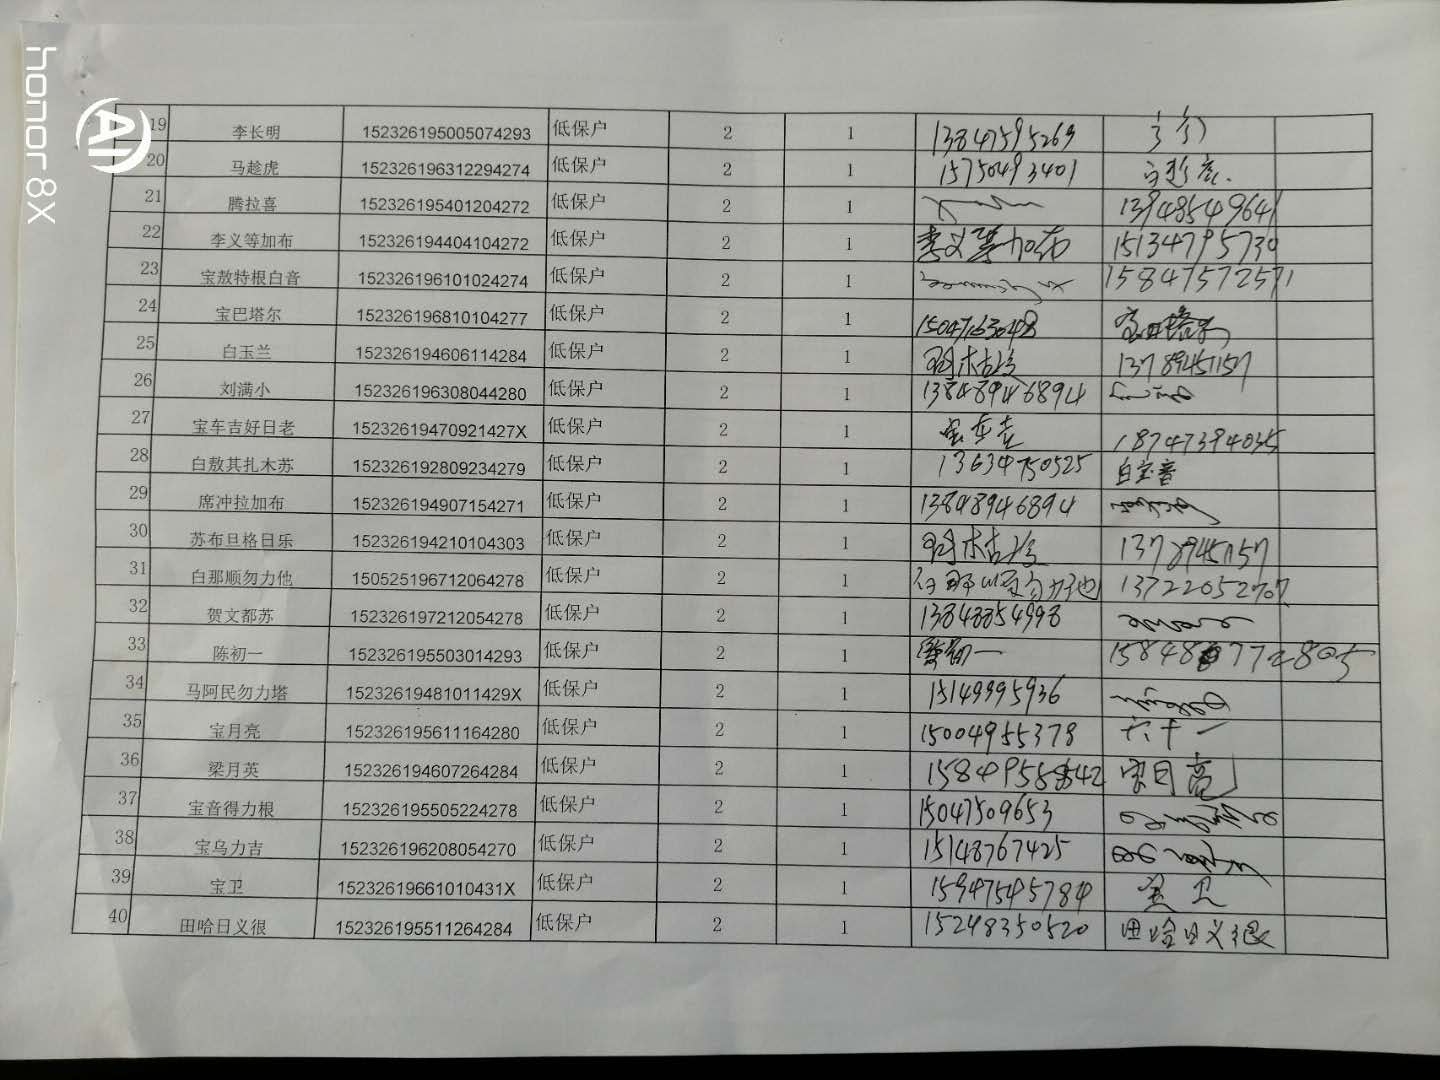 honor 8X
AI
19 李长明 152326195005074293 低保户 2 1 13847595269
20 马趁虎 152326196312294274 低保户 2 1 15750493401 马趁虎.
21 腾拉喜 152326195401204272 低保户 2 1 13948549641
22 李义等加布 152326194404104272 低保户 2 1 李义等加布 15134795730
23 宝敖特根白音 152326196101024274 低保户 2 1 15847572571
24 宝巴塔尔 152326196810104277 低保户 2 1 15047163048 宝巴塔尔
25 白玉兰 152326194606114284 低保户 2 1 13789451157
26 刘满小 152326196308044280 低保户 2 1 13848946894
27 宝车吉好日老 15232619470921427X 低保户 2 1 18747394035
28 白敖其扎木苏 152326192809234279 低保户 2 1 13634750525 白宝音
29 席冲拉加布 152326194907154271 低保户 2 1 13848946894
30 苏布旦格日乐 152326194210104303 低保户 2 1 13789451157
31 白那顺勿力他 150525196712064278 低保户 2 1 白那顺勿力他 13722052707
32 贺文都苏 152326197212054278 低保户 2 1 13848854998
33 陈初一 152326195503014293 低保户 2 1 陈初一
34 马阿民勿力塔 15232619481011429X 低保户 2 1 15149995936
35 宝月亮 152326195611164280 低保户 2 1 15004955378 六十一
36 梁月英 152326194607264284 低保户 2 1 宝月亮
37 宝音得力根 152326195505224278 低保户 2 1 15047509653
38 宝乌力吉 152326196208054270 低保户 2 1 15148767425
39 宝卫 15232619661010431X 低保户 2 1 15947545784 宝卫
40 田哈日义很 152326195511264284 低保户 2 1 15248350520 田哈日义很